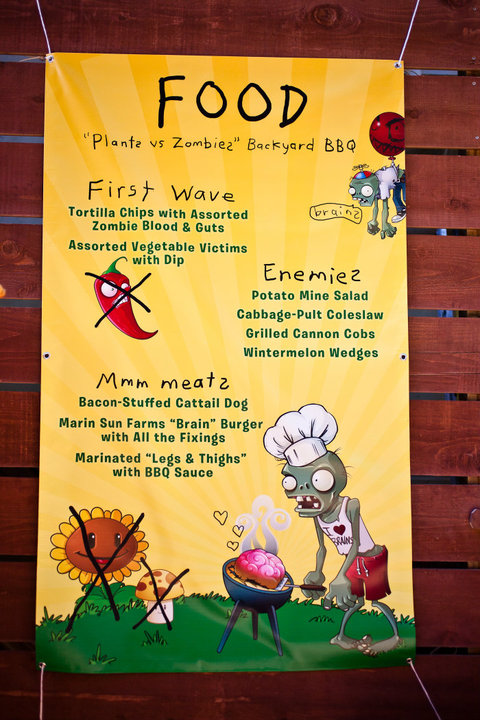 FOOD
"Plants vs Zombies" Backyard BBQ
First Wave
Tortilla Chips with Assorted
Zombie Blood & Guts
Assorted Vegetable Victims
with Dip
brains
Enemies
Potato Mine Salad
Cabbage-Pult Coleslaw
Grilled Cannon Cobs
Wintermelon Wedges
Mmm meats
Bacon-Stuffed Cattail Dog
Marin Sun Farms "Brain" Burger
with All the Fixings
Marinated "Legs & Thighs"
with BBQ Sauce
I ♥
BRAINS